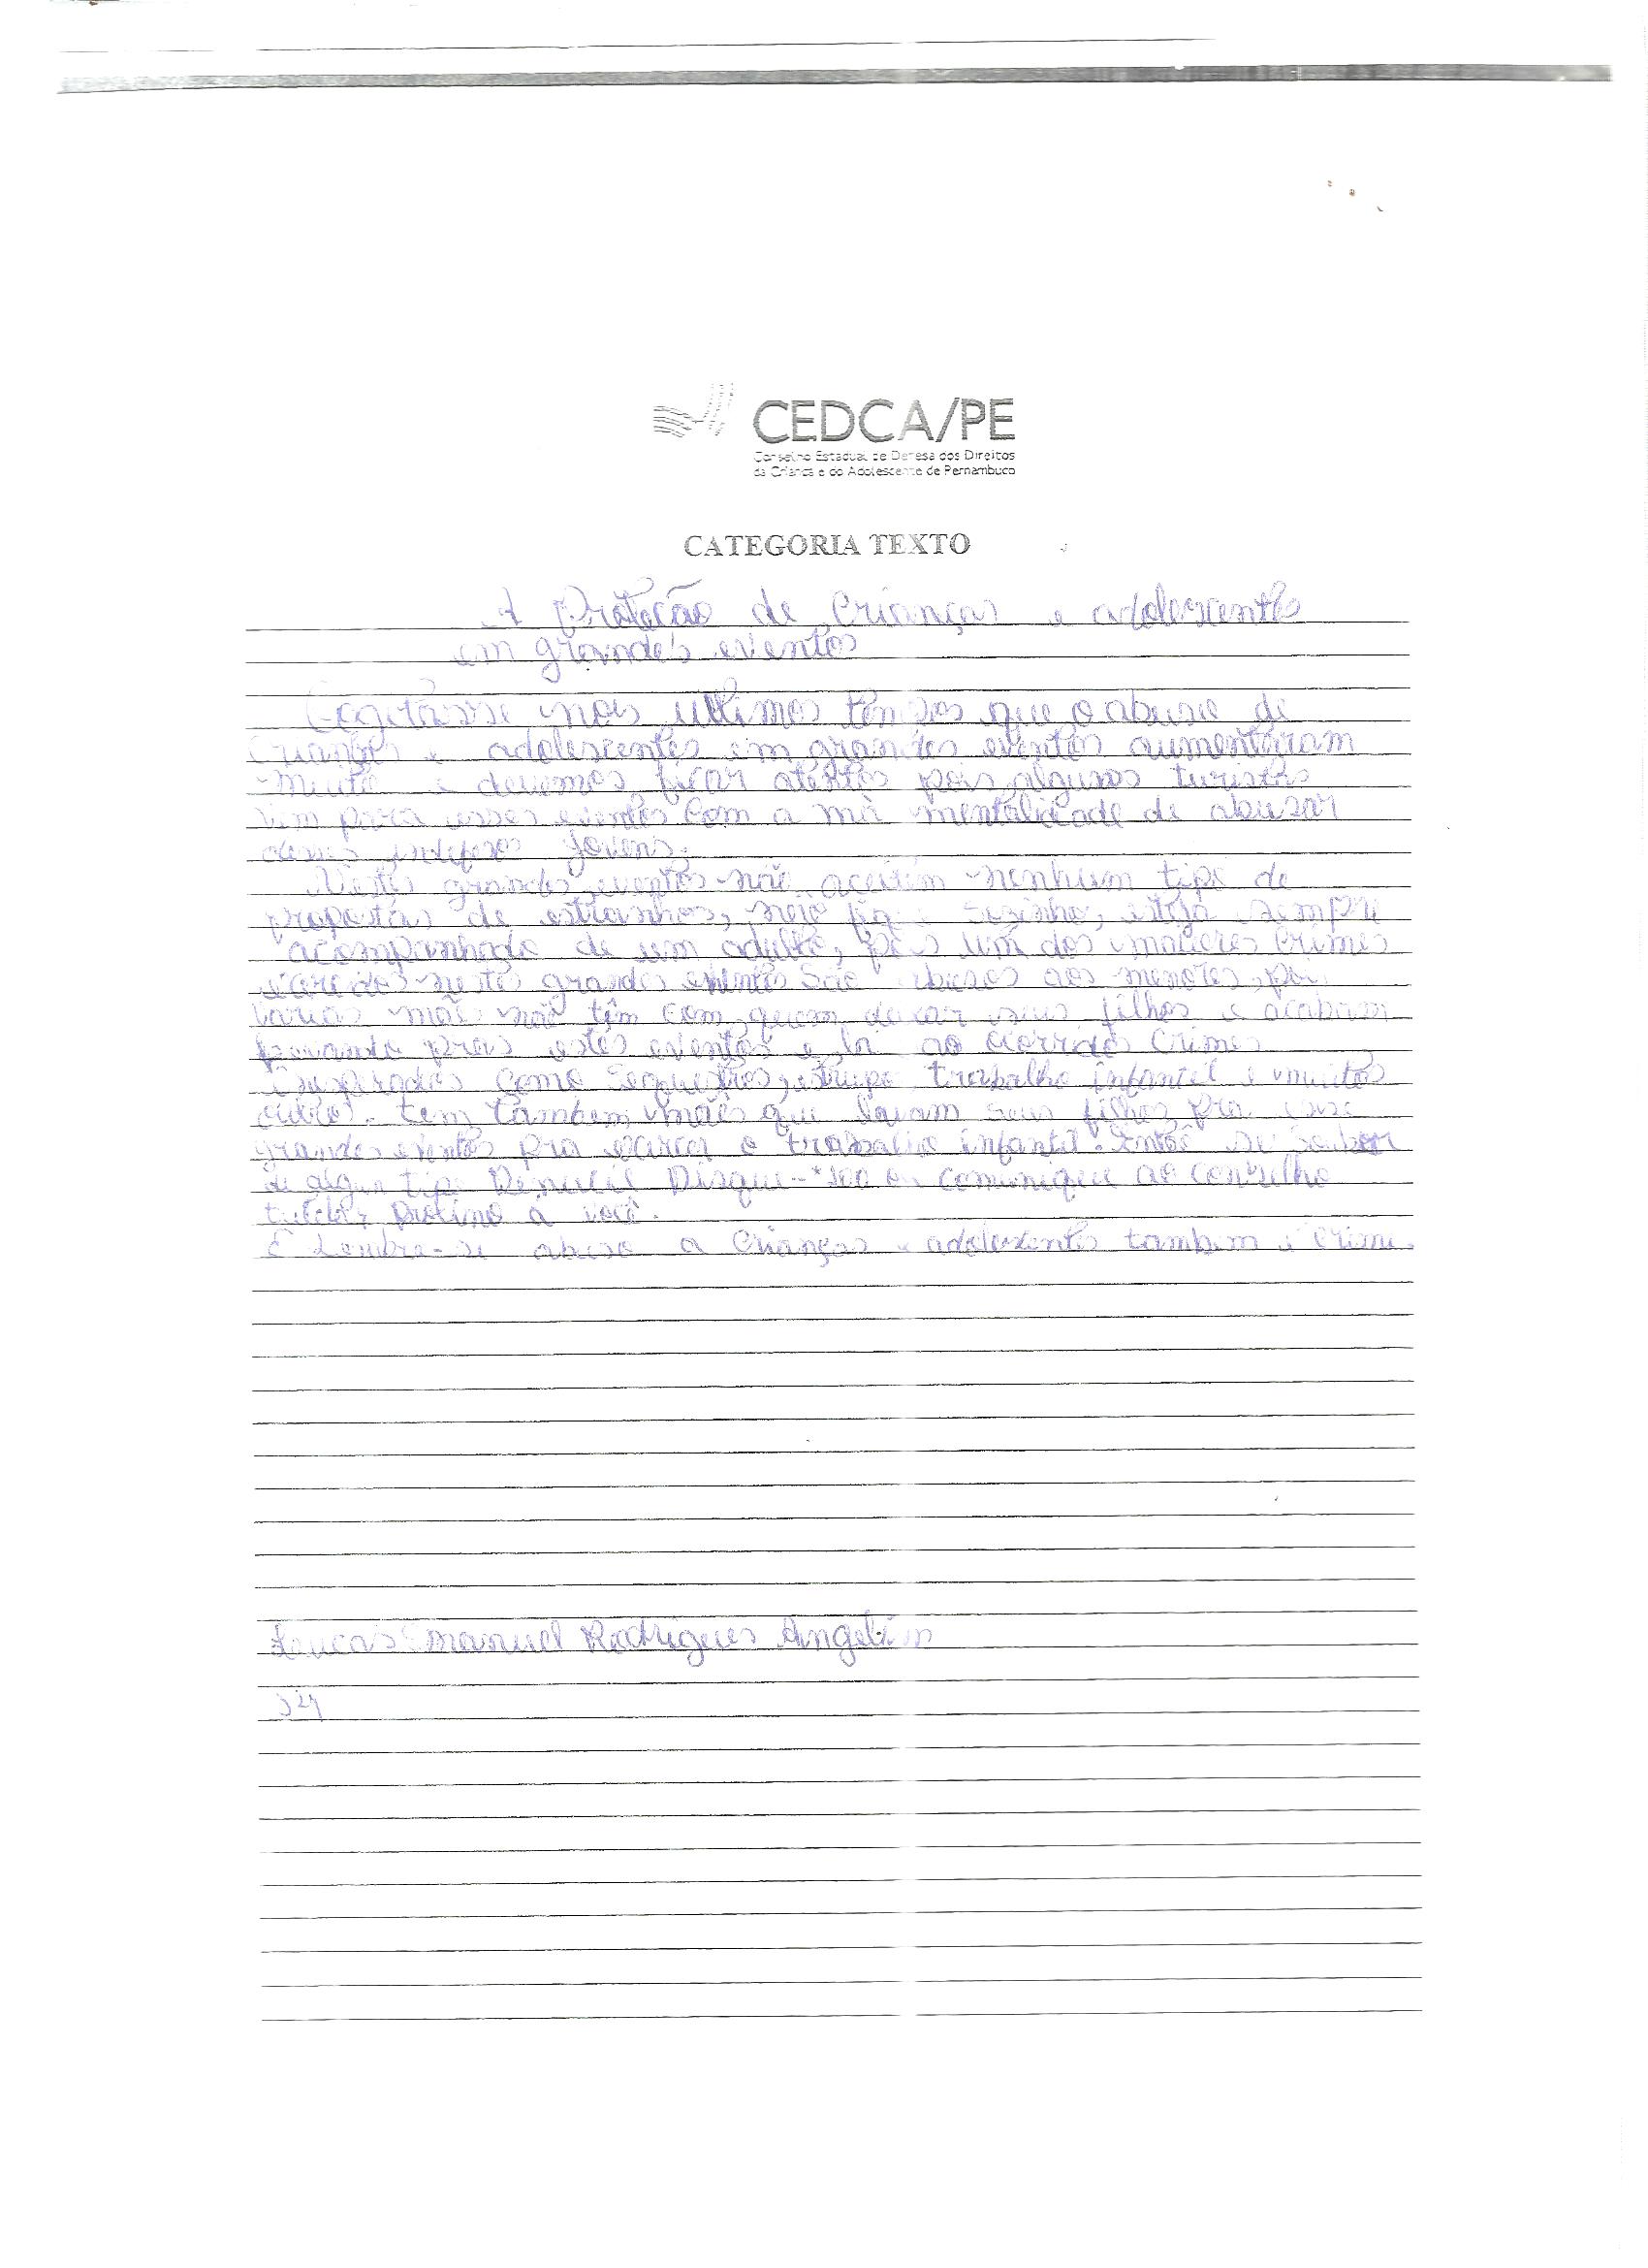 CEDCA/PE
Conselho Estadual de Defesa dos Direitos
da Criança e do Adolescente de Pernambuco
CATEGORIA TEXTO
A Proteção de Crianças e adolescentes
em grandes eventos
Cogitasse nos ultimos tempos que o abuso de
Crianças e adolescentes em grandes eventos aumentaram
Muito e devemos ficar atentos pois algusos turistas
vim para esses eventos Com a má mentalidade de abusar
desses indefesos Jovens.
Nestes grandes eventos não aceitem nenhum tipo de
propostas de estranhos, não fique Sozinho, esteja sempre
acompanhado de um adulto, pois um dos maiores Crimes
neste grandes eventos São abusos aos menores, pois
varias mães não têm com quem deixar seus filhos e acabam
levando pras estes eventos e la ao Crimes
como Sequestros, estrupo, trabalho infantil e muitos
outros. tem também mães que levam seus filhos pra esse
grandes eventos pra o trabalho infantil. Então se Souber
de algun tipo Denucie Disque-*100 ou comunique ao conselho
tutelar Protimo a você.
E Lembre-se abuso a Crianças e adolescentes tambem é Crime.
Loucas Emanuel Rodrigues Angelim